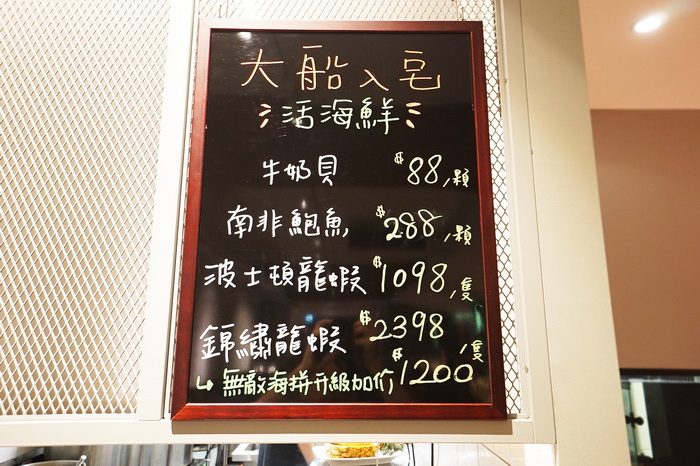 大船入皂
活海鮮
牛奶貝 $88/顆
南非鮑魚 $288/顆
波士頓龍蝦 $1098/隻
錦繡龍蝦 $2398/隻
↳無敵海拼升級加价$1200